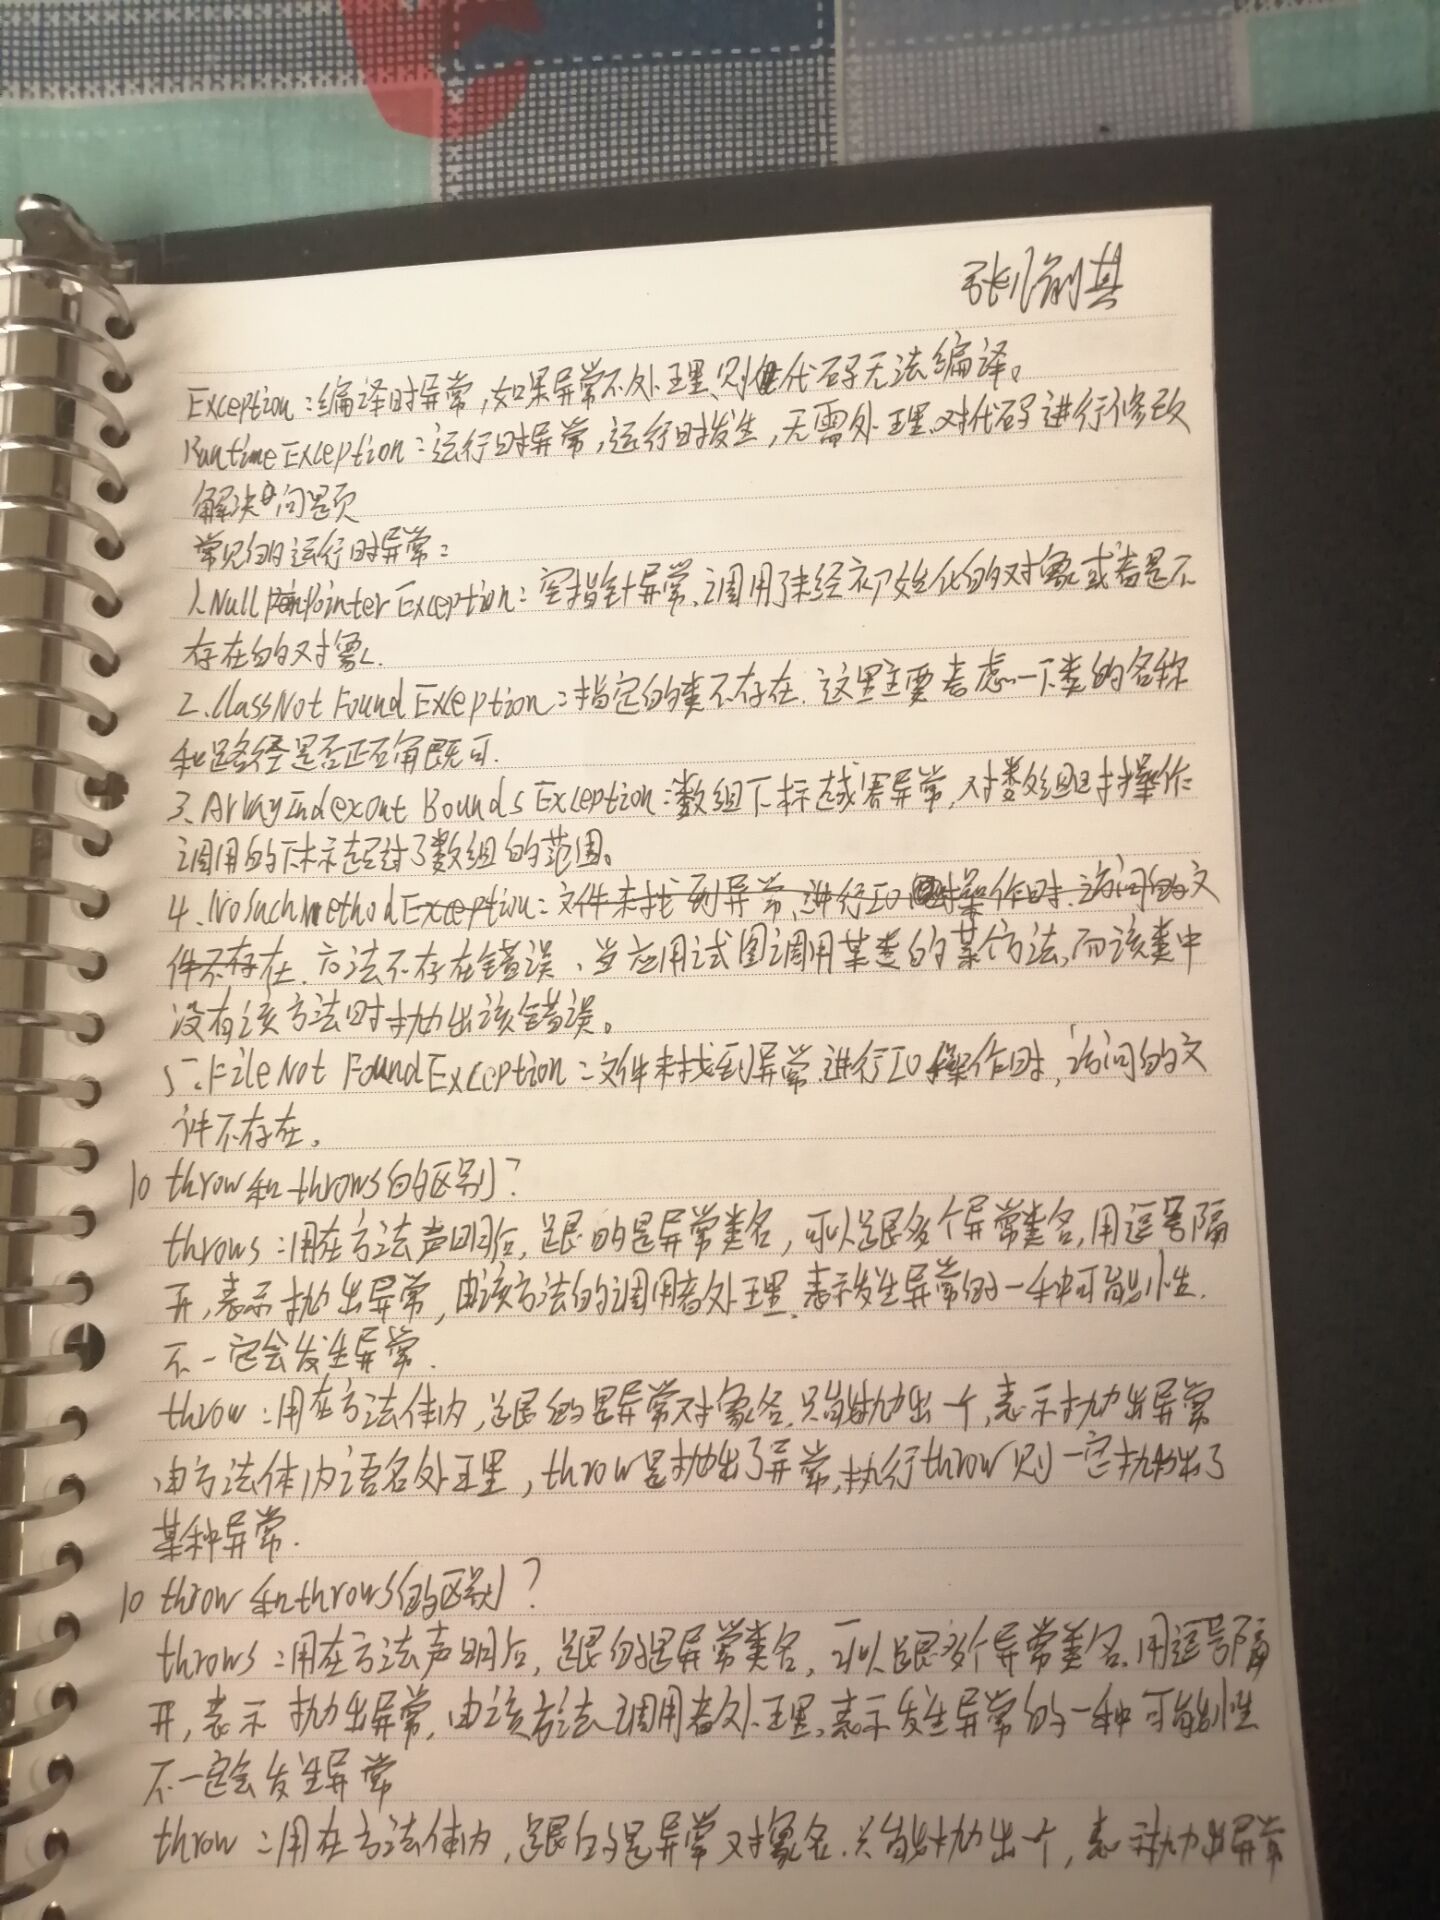 Exception：编译时异常，如果异常不处理，则代码无法编译。
RuntimeException：运行时异常，运行时发生，无需处理，对代码进行修改
解决问题
常见的运行时异常：
1、NullPointerException：空指针异常、调用了未经初始化的对象或者是不
存在的对象.
2、ClassNotFoundException：指定的类不存在. 这里主要考虑一下类的名称
和路径是否正确既可.
3、ArrayIndexOutBoundsException：数组下标越界异常，对数组操作
调用的下标超过了数组的范围。
4、NoSuchMethodException：文件未找到异常、进行IO操作时、访问的文
件不存在. 方法不存在错误、当应用试图调用某类的某个方法，而该类中
没有该方法时抛出该错误。
5、FileNotFoundException：文件未找到异常、进行IO操作时，访问的文
件不存在。
10 throw和throws的区别？
throws：用在方法声明后，跟的是异常类名，可以跟多个异常类名，用逗号隔
开，表示抛出异常，由该方法的调用者处理、表示发生异常的一种可能性.
不一定会发生异常.
throw：用在方法体内，跟的是异常对象名、只能抛出一个，表示抛出异常
由方法体内语名处理，throw是抛出了异常，执行throw则一定抛出了
某种异常.
10 throw和throws的区别？
throws：用在方法声明后，跟的是异常类名，可以跟多个异常类名、用逗号隔
开，表示抛出异常，由该方法调用者处理、表示发生异常的一种可能性
不一定会发生异常
throw：用在方法体内，跟的是异常对象名、只能抛出一个，表示抛出异常